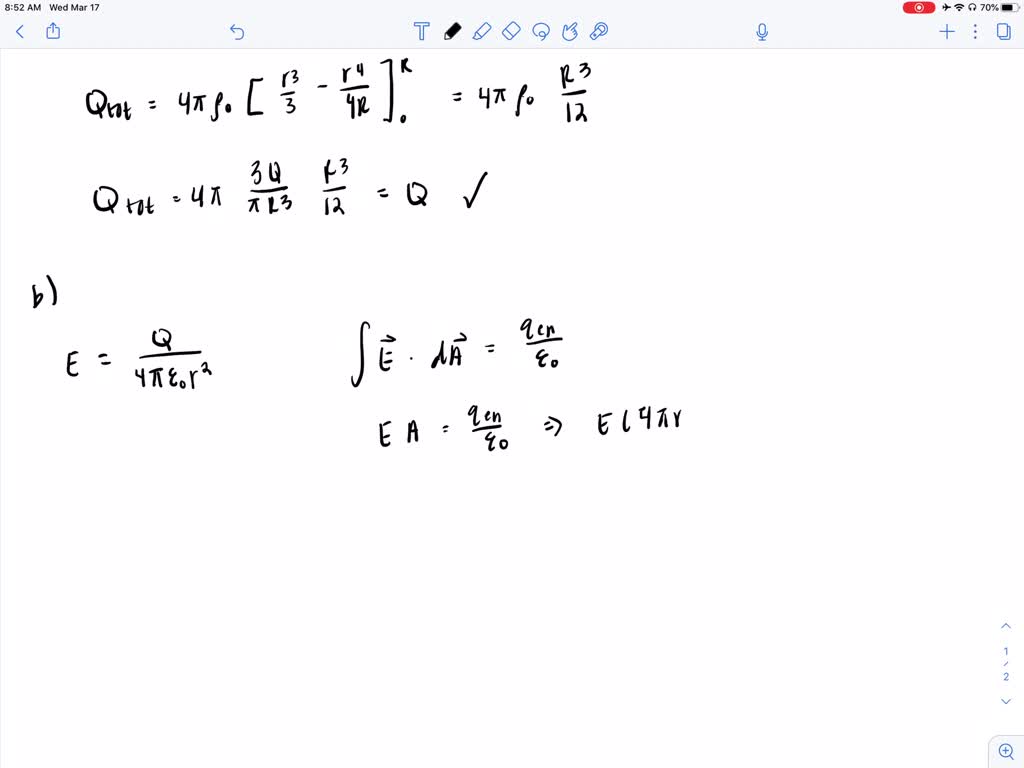 8:52 AM Wed Mar 17 70%
Qtot = 4π ρ₀ [ r³/3 - r⁴/4R ]₀ᴿ = 4π ρ₀ R³/12
Qtot = 4π 3Q/πR³ R³/12 = Q ✓
b)
E = Q/4πε₀r² ∫ E⃗ · dA⃗ = qen/ε₀
E A = qen/ε₀ ⇒ E ( 4πr
1
/
2